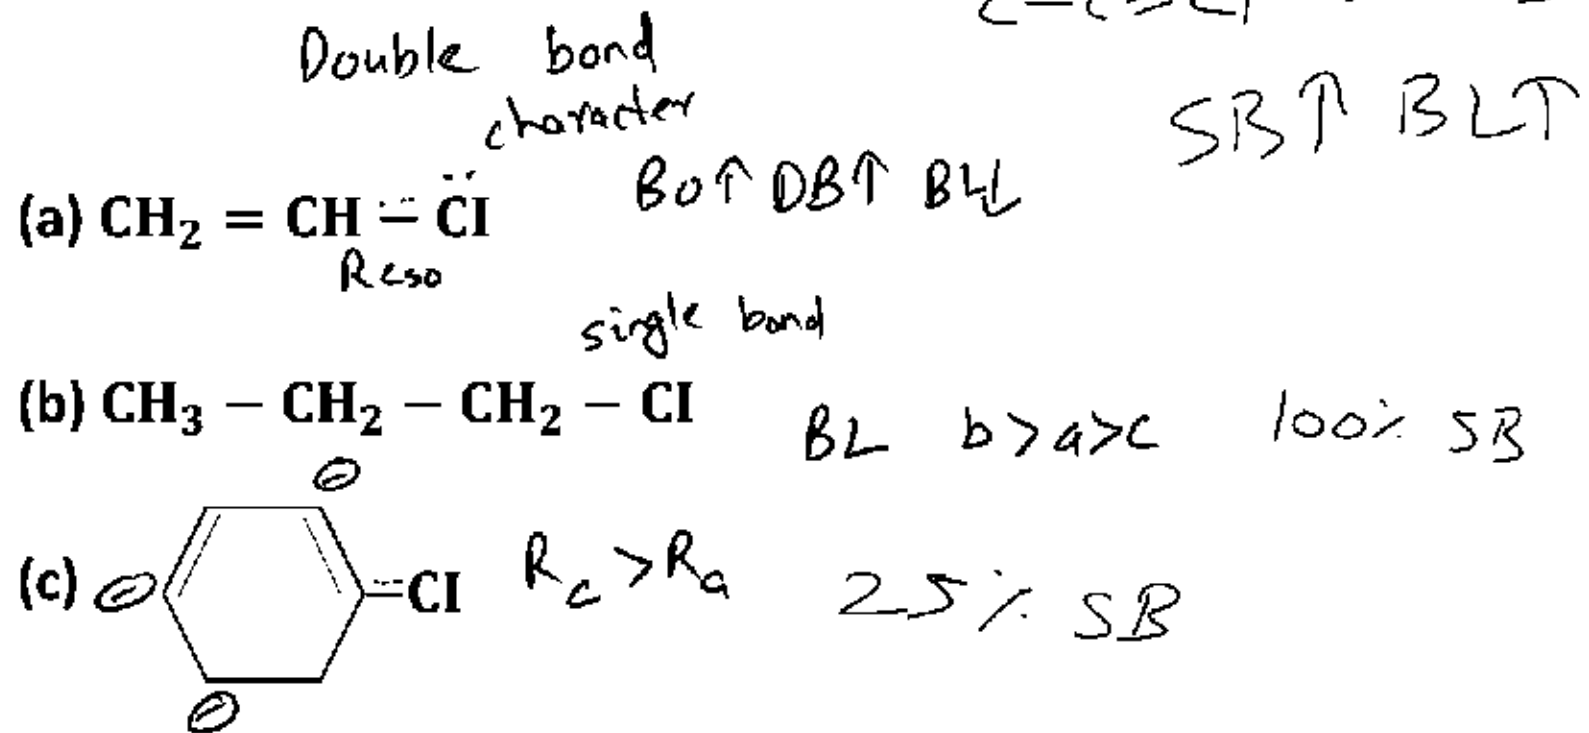 Double bond
character
SB↑ BL↑
(a) CH₂ = CH − C̈l BO↑ DB↑ BL↓
Reso
single bond
(b) CH₃ − CH₂ − CH₂ − Cl BL b>a>c 100% SB
⊖
(c) ⊖ Cl R_c > R_a 25% SB
⊖